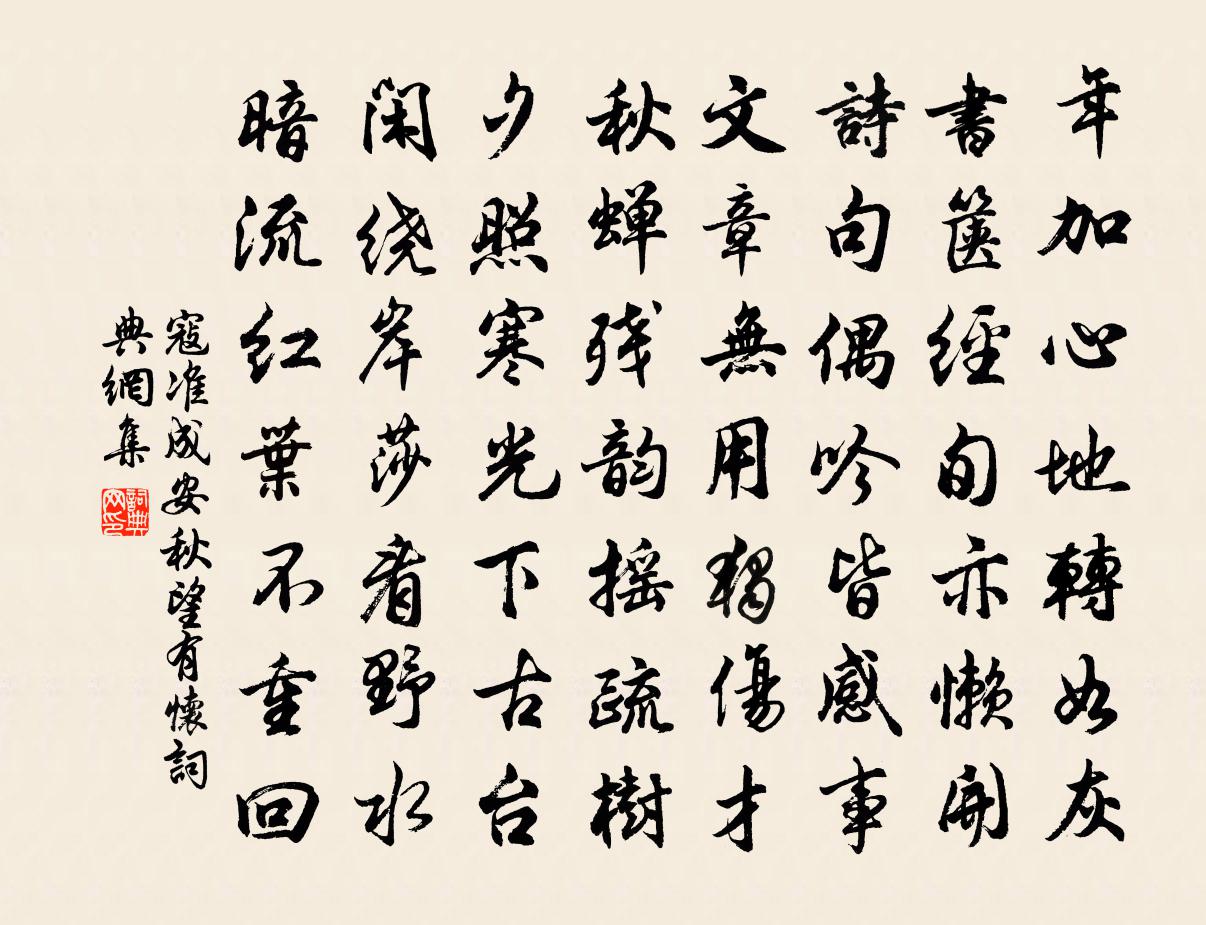 年加心地轉如灰
書篋經旬亦懒開
詩句偶吟皆感事
文章無用獨傷才
秋蝉残韵摇疏樹
夕照寒光下古台
闲绕岸莎看野水
暗流红葉不重回
寇准成安秋望有懷詞
典網集
詞典
网印